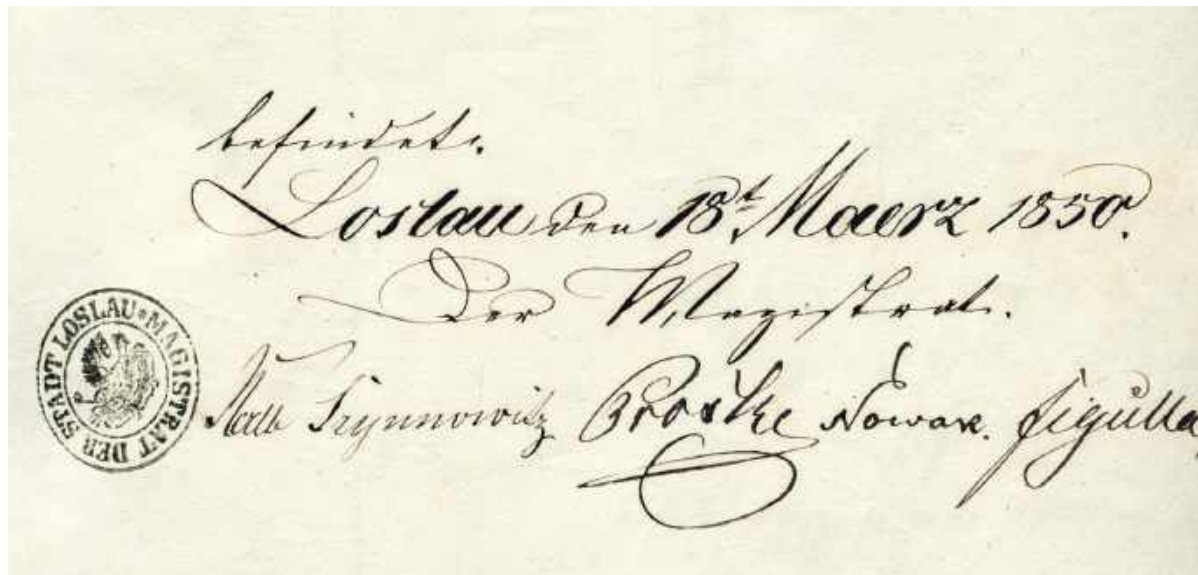 befindet.
Loslau den 18t Maerz 1850.
Der Magistrat.
MAGISTRAT DER STADT LOSLAU
Proske Nowak. Figulla